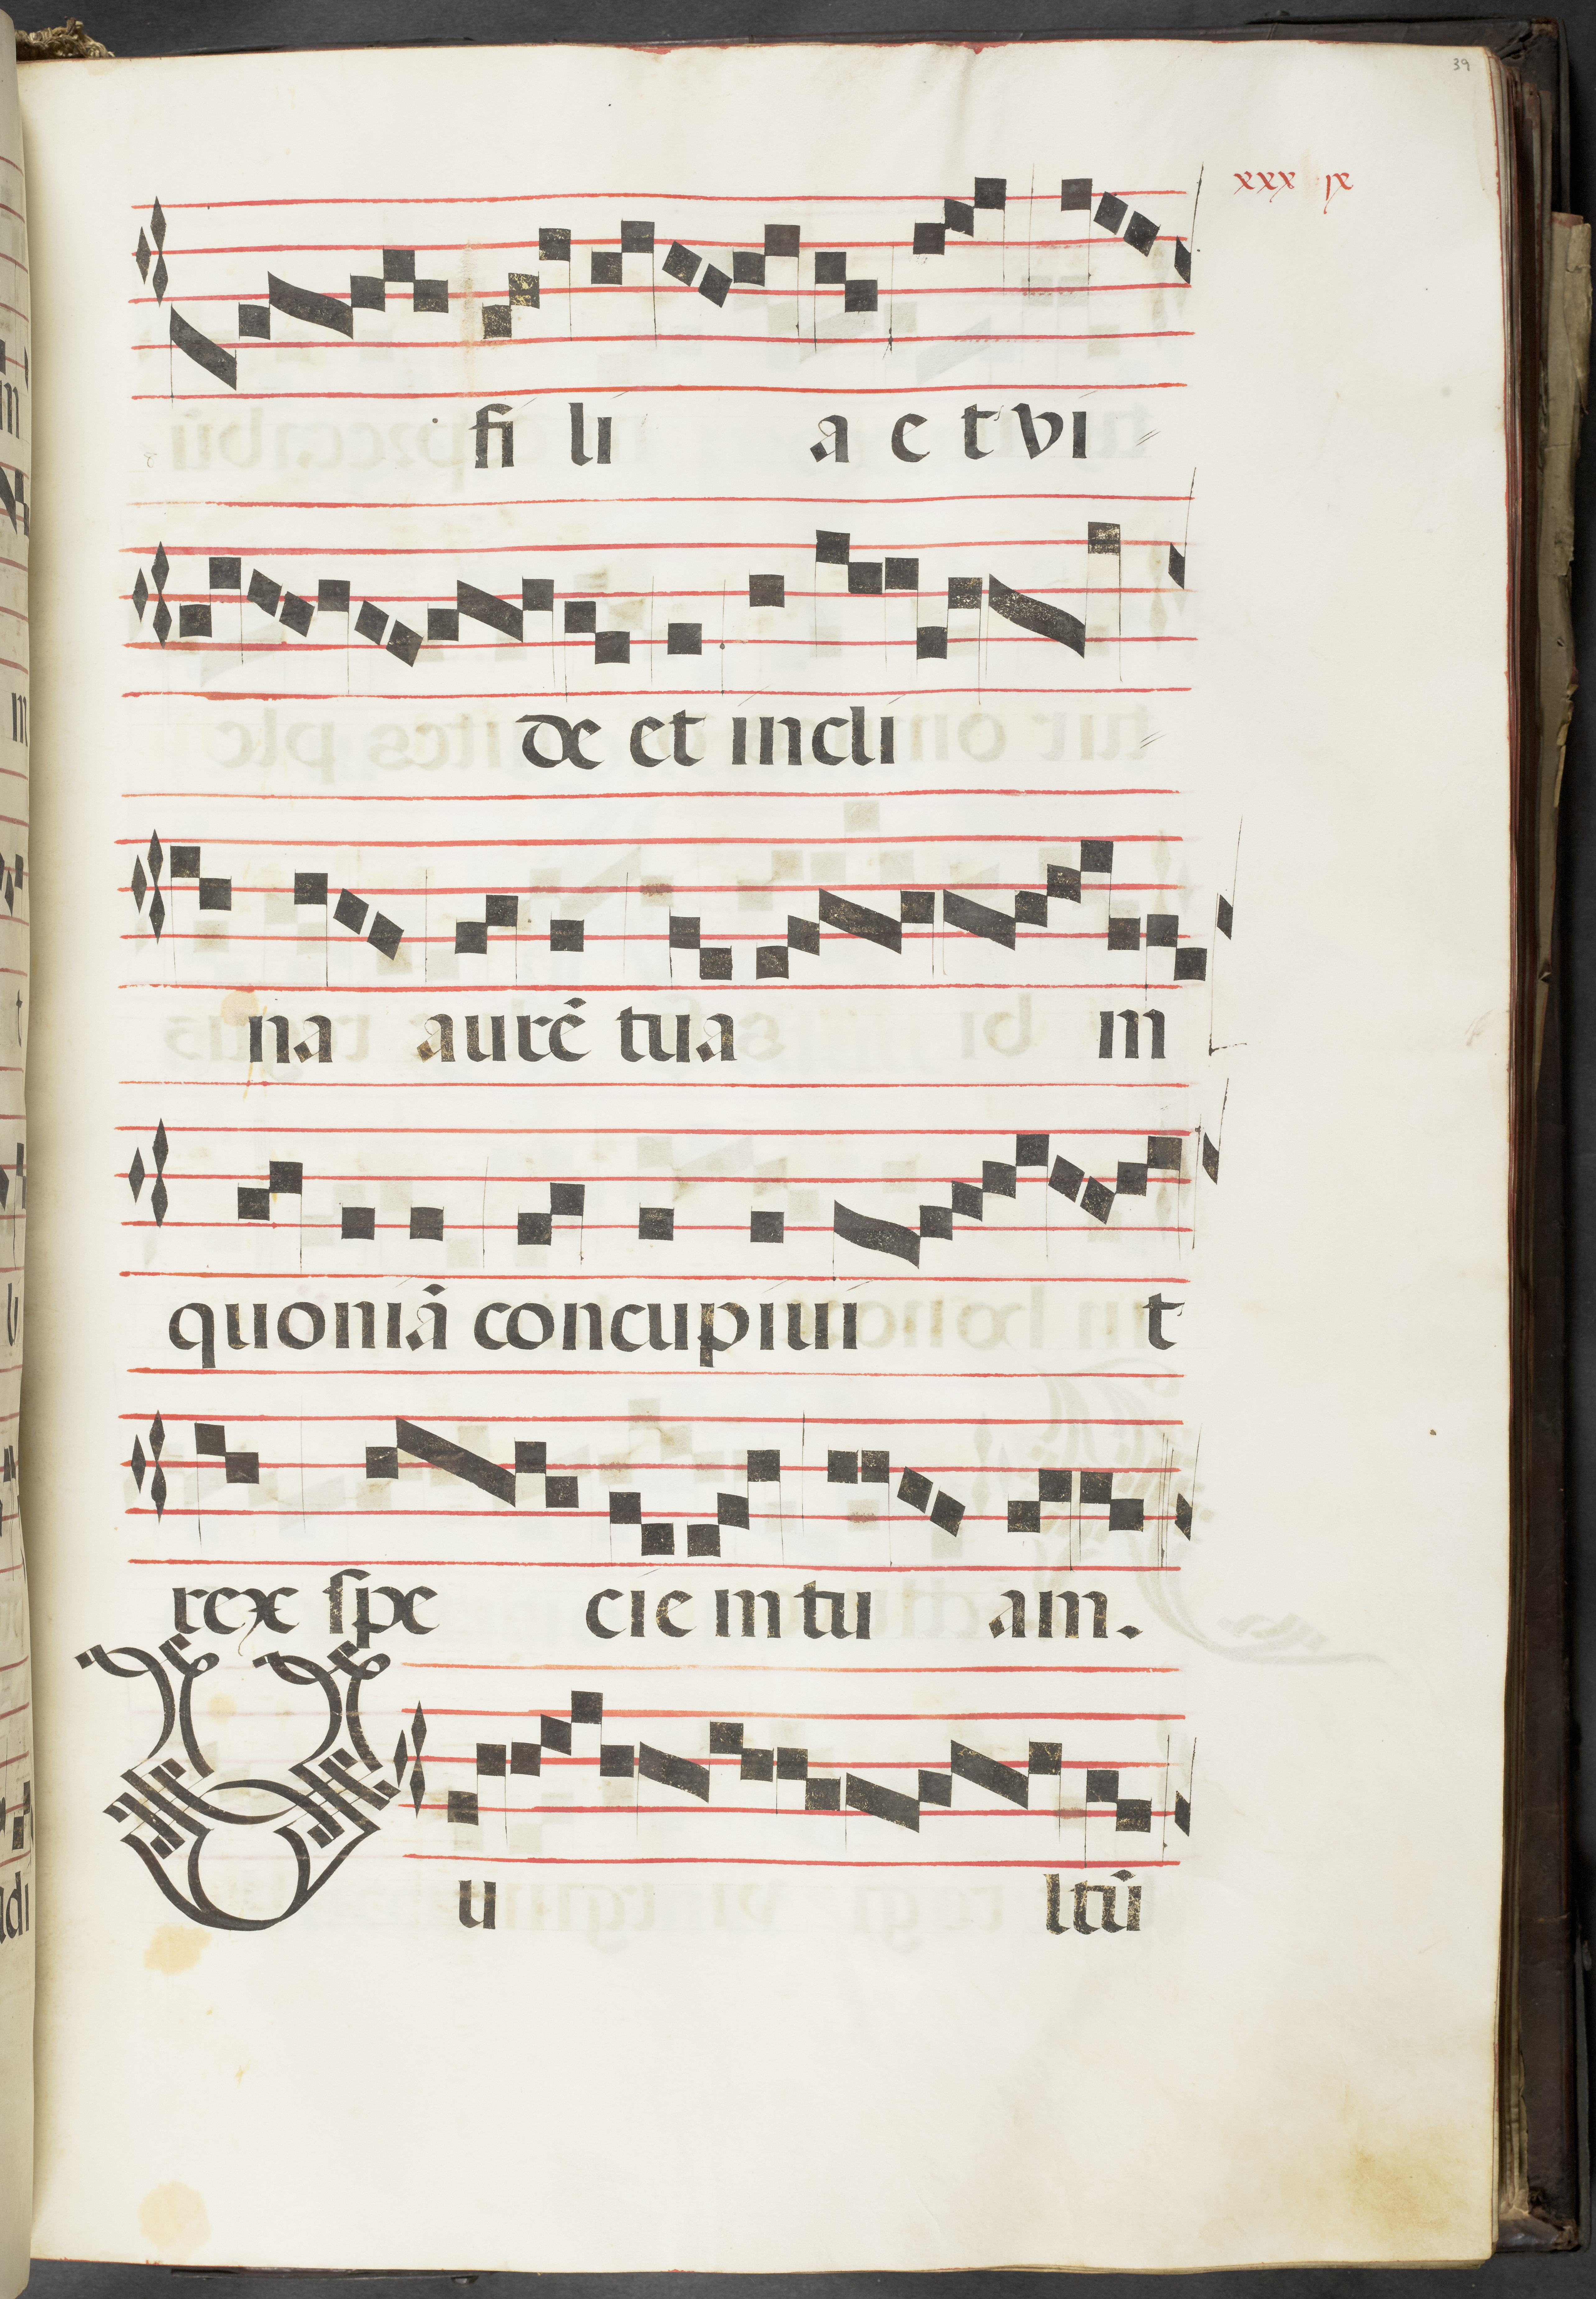 39
xxx ix
fi li a e t vi
de et incli
na aurē tua m
quoniā concupiui t
rex spe cie m tu am.
V u ltū